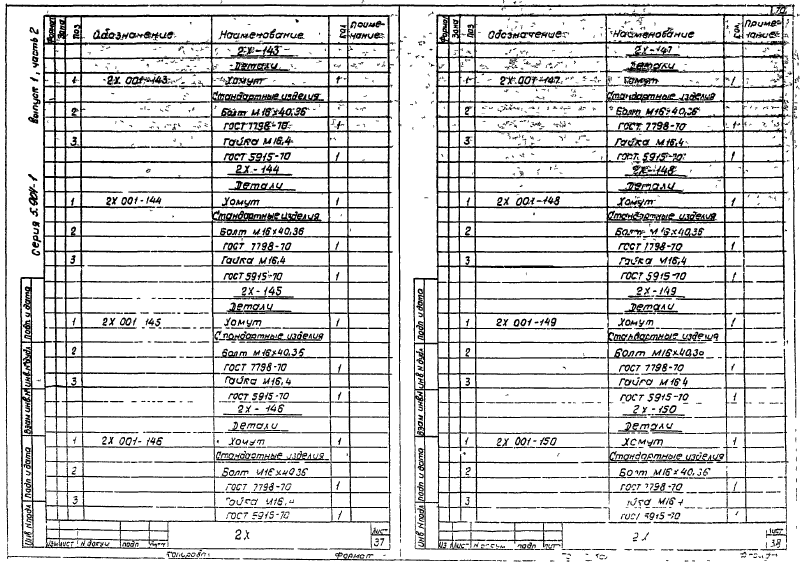 Серия 5.001-1 Выпуск 1, часть 2
Формат Зона Поз. Обозначение Наименование Кол. Примечание
2Х-143
Детали
1 2Х 001-143 Хомут 1
Стандартные изделия
2 Болт М16×40,36
ГОСТ 7798-70 1
3 Гайка М16,4
ГОСТ 5915-70 1
2Х-144
Детали
1 2Х 001-144 Хомут 1
Стандартные изделия
2 Болт М16×40,36
ГОСТ 7798-70 1
3 Гайка М16,4
ГОСТ 5915-70 1
2Х-145
Детали
1 2Х 001 145 Хомут 1
Стандартные изделия
2 Болт М16×40,36
ГОСТ 7798-70 1
3 Гайка М16,4
ГОСТ 5915-70 1
2Х-146
Детали
1 2Х 001-146 Хомут 1
Стандартные изделия
2 Болт М16×40,36
ГОСТ 7798-70 1
3 Гайка М16,4
ГОСТ 5915-70 1
Инв. N подл. Подп. и дата Взам. инв. N Инв. N дубл. Подп. и дата
Изм. Лист N докум подп.
2Х
Лист
37
Копировал Формат
Формат Зона Поз. Обозначение Наименование Кол. Примечание
2Х-147
Детали
1 2Х 001-147 Хомут 1
Стандартные изделия
2 Болт М16×40,36
ГОСТ 7798-70 1
3 Гайка М16,4
ГОСТ 5915-70 1
2Х-148
Детали
1 2Х 001-148 Хомут 1
Стандартные изделия
2 Болт М16×40,36
ГОСТ 7798-70 1
3 Гайка М16,4
ГОСТ 5915-70 1
2Х-149
Детали
1 2Х 001-149 Хомут 1
Стандартные изделия
2 Болт М16×40,36
ГОСТ 7798-70 1
3 Гайка М16 4
ГОСТ 5915-70 1
2Х-150
Детали
1 2Х 001-150 Хомут 1
Стандартные изделия
2 Болт М16×40,36
ГОСТ 7798-70 1
3 Гайка М16 4
ГОСТ 5915-70 1
Инв. N подл. Подп. и дата Взам. инв. N Инв. N дубл. Подп. и дата
Изм. Лист N докум подп.
2Х
Лист
38